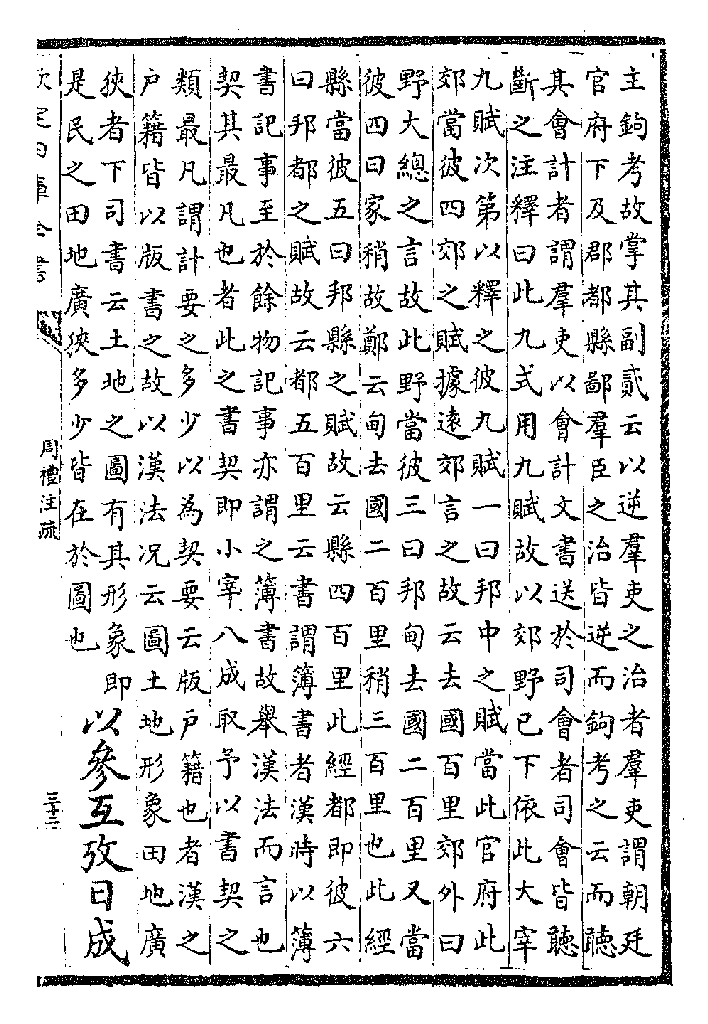 主鉤考故掌其副貳云以逆羣吏之治者羣吏謂朝廷
官府下及郡都縣鄙羣臣之治皆逆而鉤考之云而聽
其會計者謂羣吏以會計文書送於司會者司會皆聽
斷之注釋曰此九式用九賦故以郊野已下依此大宰
九賦次第以釋之彼九賦一曰邦中之賦當此官府此
郊當彼四郊之賦據遠郊言之故云去國百里郊外曰
野大總之言故此野當彼三曰邦甸去國二百里又當
彼四曰家稍故鄭云甸去國二百里稍三百里也此經
縣當彼五曰邦縣之賦故云縣四百里此經都即彼六
曰邦都之賦故云都五百里云書謂簿書者漢時以簿
書記事至於餘物記事亦謂之簿書故舉漢法而言也
契其最凡也者此之書契即小宰八成取予以書契之
類最凡謂計要之多少以為契要云版戶籍也者漢之
戶籍皆以版書之故以漢法况云圖土地形象田地廣
狹者下司書云土地之圖有其形象即
是民之田地廣狹多少皆在於圖也
以參互攷日成
欽定四庫全書
周禮注疏
三十二